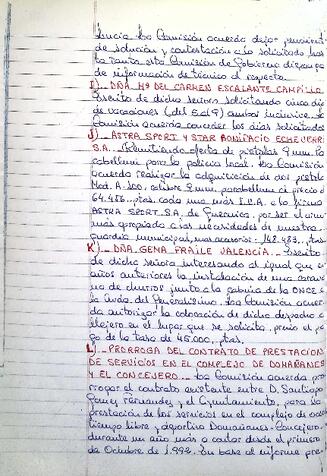 lucia. La Comisión acuerda dejar pendiente
de solución y contestación a lo solicitado hasta
la tanto esta Comisión de Gobierno disponga
de información de técnico al respecto.
I).- DÑA Mª DEL CARMEN ESCALANTE CAMPILLO
Escrito de dicha señora solicitando cinco días
de vacaciones (del 5 al 9) ambos inclusive. La
Comisión acuerda conceder los días solicitados
J).- ASTRA SPORT Y STAR BONIFACIO ECHEVERRI
S.A. - Remitiendo oferta de pistolas 9 mm. Pa-
rabellum para la policía local. La Comisión
acuerda realizar la adquisición de dos pistolas
Mod. A-100, calibre 9 mm. parabellum al precio de
64.486.- ptas. cada una más I.V.A. a la firma
ASTRA SPORT S.A. de Guernica, por ser el arma
más apropiada a las necesidades de nuestra
guardia municipal, mas accesorios: 148.483.- ptas.
K).- DÑA GEMA FRAILE VALENCIA.- Escrito
de dicha señora interesando al igual que en
años anteriores la instalación de una carava-
na de churros junto a la cabina de la ONCE en
la Avda. del Generalísimo. La Comisión acuer-
da autorizar la colocación de dicho despacho ca-
llejero en el lugar que se solicita, previo el pa-
go de la tasa de 45.000,- ptas.
L).- PRORROGA DEL CONTRATO DE PRESTACION
DE SERVICIOS EN EL COMPLEJO DE DOMAÑANES
Y EL CONCEJERO.- La Comisión acuerda pro-
rrogar el contrato existente entre D. Santiago
Fernández, y el Ayuntamiento, para la
prestación de los servicios en el complejo de ocio
tiempo libre y deportivo Domañanes-Concejero,
durante un año más a contar desde el primero
de Octubre de 1.992. En base al informe pre-